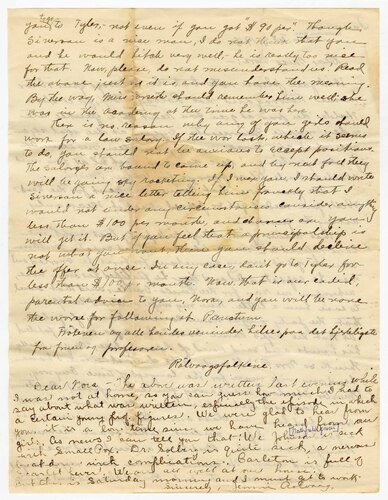 you to Tyler, - not even if you got "$90 per". Though
Siverson is a nice man, I do not think that you
and he would hitch very well, he is really too nice
for that. Now please do not misunderstand us! Read
the above just as it is and you have the meaning.
By the way, Miss should remember him well, she
was in the Academy at the time he was here.
There is no reason why any of you girls should
work for a low salary. If the war lasts, which it seems
to do, you should not be anxious to accept positions.
The salaries are bound to come up, and by next fall they
will be going sky rocketing. If I were you, I should write
Siverson a nice letter telling him frankly that I
would not under any circumstances consider anything
less than $100 per month, and chances are you
will get it. But if you feel that a principalship is
not what you want then you should decline
the offer at once. In any case, don't go to Tyler for
less than $100 a month. Now that is our called,
parental advice to you, Nora, and you will be none
the worse for following it.
Frøknen by alle hendes veninder hilses paa det
fra fruen og professoren.
Dear Nora - The above was written last evening while
I was not at home, so you can guess how much I had to
say about what was written, especially the episode in which
a certain young lady figures. We were glad to hear from
you it is a long time since we have heard from our
girls. As news I can tell you that is sick
with Small Pox. Dr. is quite sick, a nervous
break down with complications. Carleton is full of
. We are all well at our house.
But this is Saturday morning and I must get to work.
Sincerely,